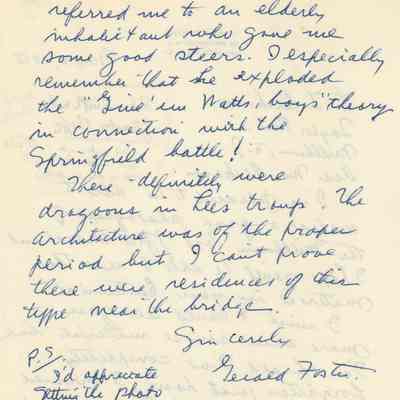 referred me to an elderly
inhabitant who gave me
some good steers. I especially
remember that he exploded
the "Give 'em Watts, boys" theory
in connection with the
Springfield battle!
There definitely were
dragoons in Lees troup. The
architecture was of the proper
period but I can't prove
there were residences of this
type near the bridge.
Sincerely
Gerald Foster.
P.S.
I'd appreciate
getting the photo